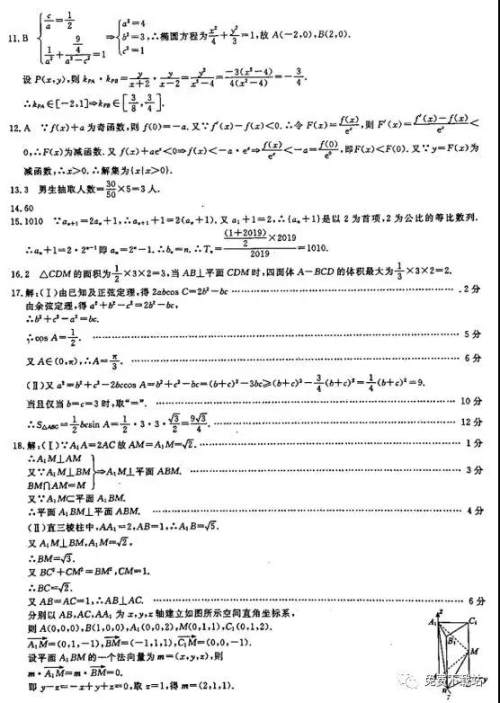 11. B { c/a = 1/2, 1/a² + (9/4)/(a²-c²) = 1 ⇒ { a²=4, b²=3, c²=1 ∴椭圆方程为 x²/4 + y²/3 = 1, 故 A(-2,0), B(2,0).
设 P(x,y), 则 k_PA · k_PB = y/(x+2) · y/(x-2) = y²/(x²-4) = -3(x²-4)/4(x²-4) = -3/4.
∴k_PA∈[-2,-1]⇒k_PB∈[3/8, 3/4].
12. A ∵f(x)+a为奇函数,则 f(0)=-a. 又∵f′(x)-f(x)<0. ∴令 F(x)=f(x)/eˣ, 则 F′(x)=(f′(x)-f(x))/eˣ<
0, ∴F(x)为减函数. 又 f(x)+aeˣ<0⇒f(x)<-a·eˣ⇒f(x)/eˣ<-a=f(0)/e⁰, 即F(x)<F(0). 又∵y=F(x)为
减函数, ∴x>0. ∴解集为{x|x>0}.
13. 3 男生抽取人数=30/50×5=3人.
14. 60
15. 1010 ∵aₙ₊₁=2aₙ+1, ∴aₙ₊₁+1=2(aₙ+1), 又 a₁+1=2, ∴{aₙ+1}是以2为首项,2为公比的等比数列.
∴aₙ+1=2·2ⁿ⁻¹ 即 aₙ=2ⁿ-1. ∴bₙ=n. ∴Tₙ=((1+2019)/2×2019)/2019=1010.
16. 2 △CDM的面积为1/2×3×2=3, 当AB⊥平面CDM时, 四面体A-BCD的体积最大为1/3×3×2=2.
17. 解:(Ⅰ)由已知及正弦定理,得 2abcos C=2b²-bc ……2分
由余弦定理,得 a²+b²-c²=2b²-bc,
∴b²+c²-a²=bc.
∴cos A=1/2. ……5分
又 A∈(0,π), ∴A=π/3. ……6分
(Ⅱ)又 a²=b²+c²-2bccos A=b²+c²-bc=(b+c)²-3bc≥(b+c)²-3/4(b+c)²=1/4(b+c)²=9.
当且仅当 b=c=3 时,取“=”. ……10分
∴S△ABC=1/2bcsin A=1/2·3·3·√3/2=9√3/4. ……12分
18. 解:(Ⅰ)∵A₁A=2AC 故 AM=A₁M=√2. ……1分
∴A₁M⊥AM
又∵A₁M⊥BM }⇒A₁M⊥平面 ABM. ……3分
BM∩AM=M
又∵A₁M⊂平面 A₁BM.
∴平面 A₁BM⊥平面 ABM. ……4分
(Ⅱ)直三棱柱中, AA₁=2, AB=1, ∴A₁B=√5.
又 A₁M⊥BM, A₁M=√2,
∴BM=√3.
又 BC²+CM²=BM², CM=1.
∴BC=√2.
又 AB=AC=1, ∴AB⊥AC. ……6分
分别以 AB, AC, AA₁ 为 x, y, z 轴建立如图所示空间直角坐标系,
则 A(0,0,0), B(1,0,0), A₁(0,0,2), M(0,1,1), C₁(0,1,2).
A₁M=(0,1,-1), BM=(-1,1,1), C₁M=(0,0,-1).
设平面 A₁BM 的一个法向量为 m=(x,y,z), 则
m·A₁M=m·BM=0.
即 y-z=-x+y+z=0, 取 z=1, 得 m=(2,1,1).
A₁ C₁
B₁
M